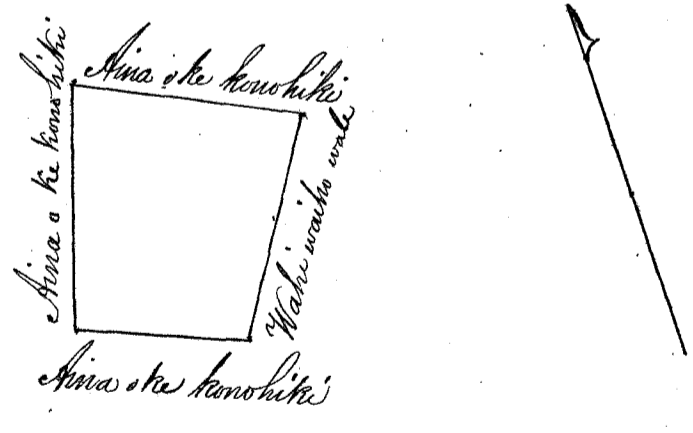 Aina o ke konohiki
Aina o ke konohiki
Wahi waiho wale
Aina o ke konohiki